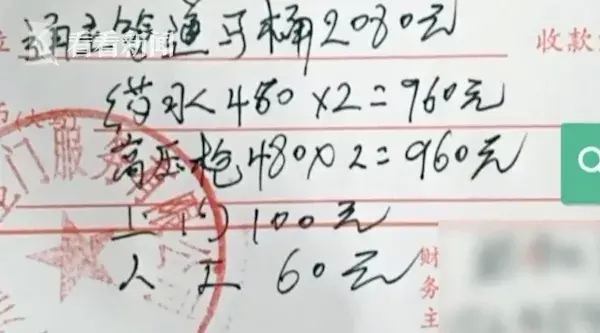 通主管通马桶2080元
看看新闻
收款
药水480×2=960元
高压枪480×2=960元
上门100元
人工 60元
门服务
财务主